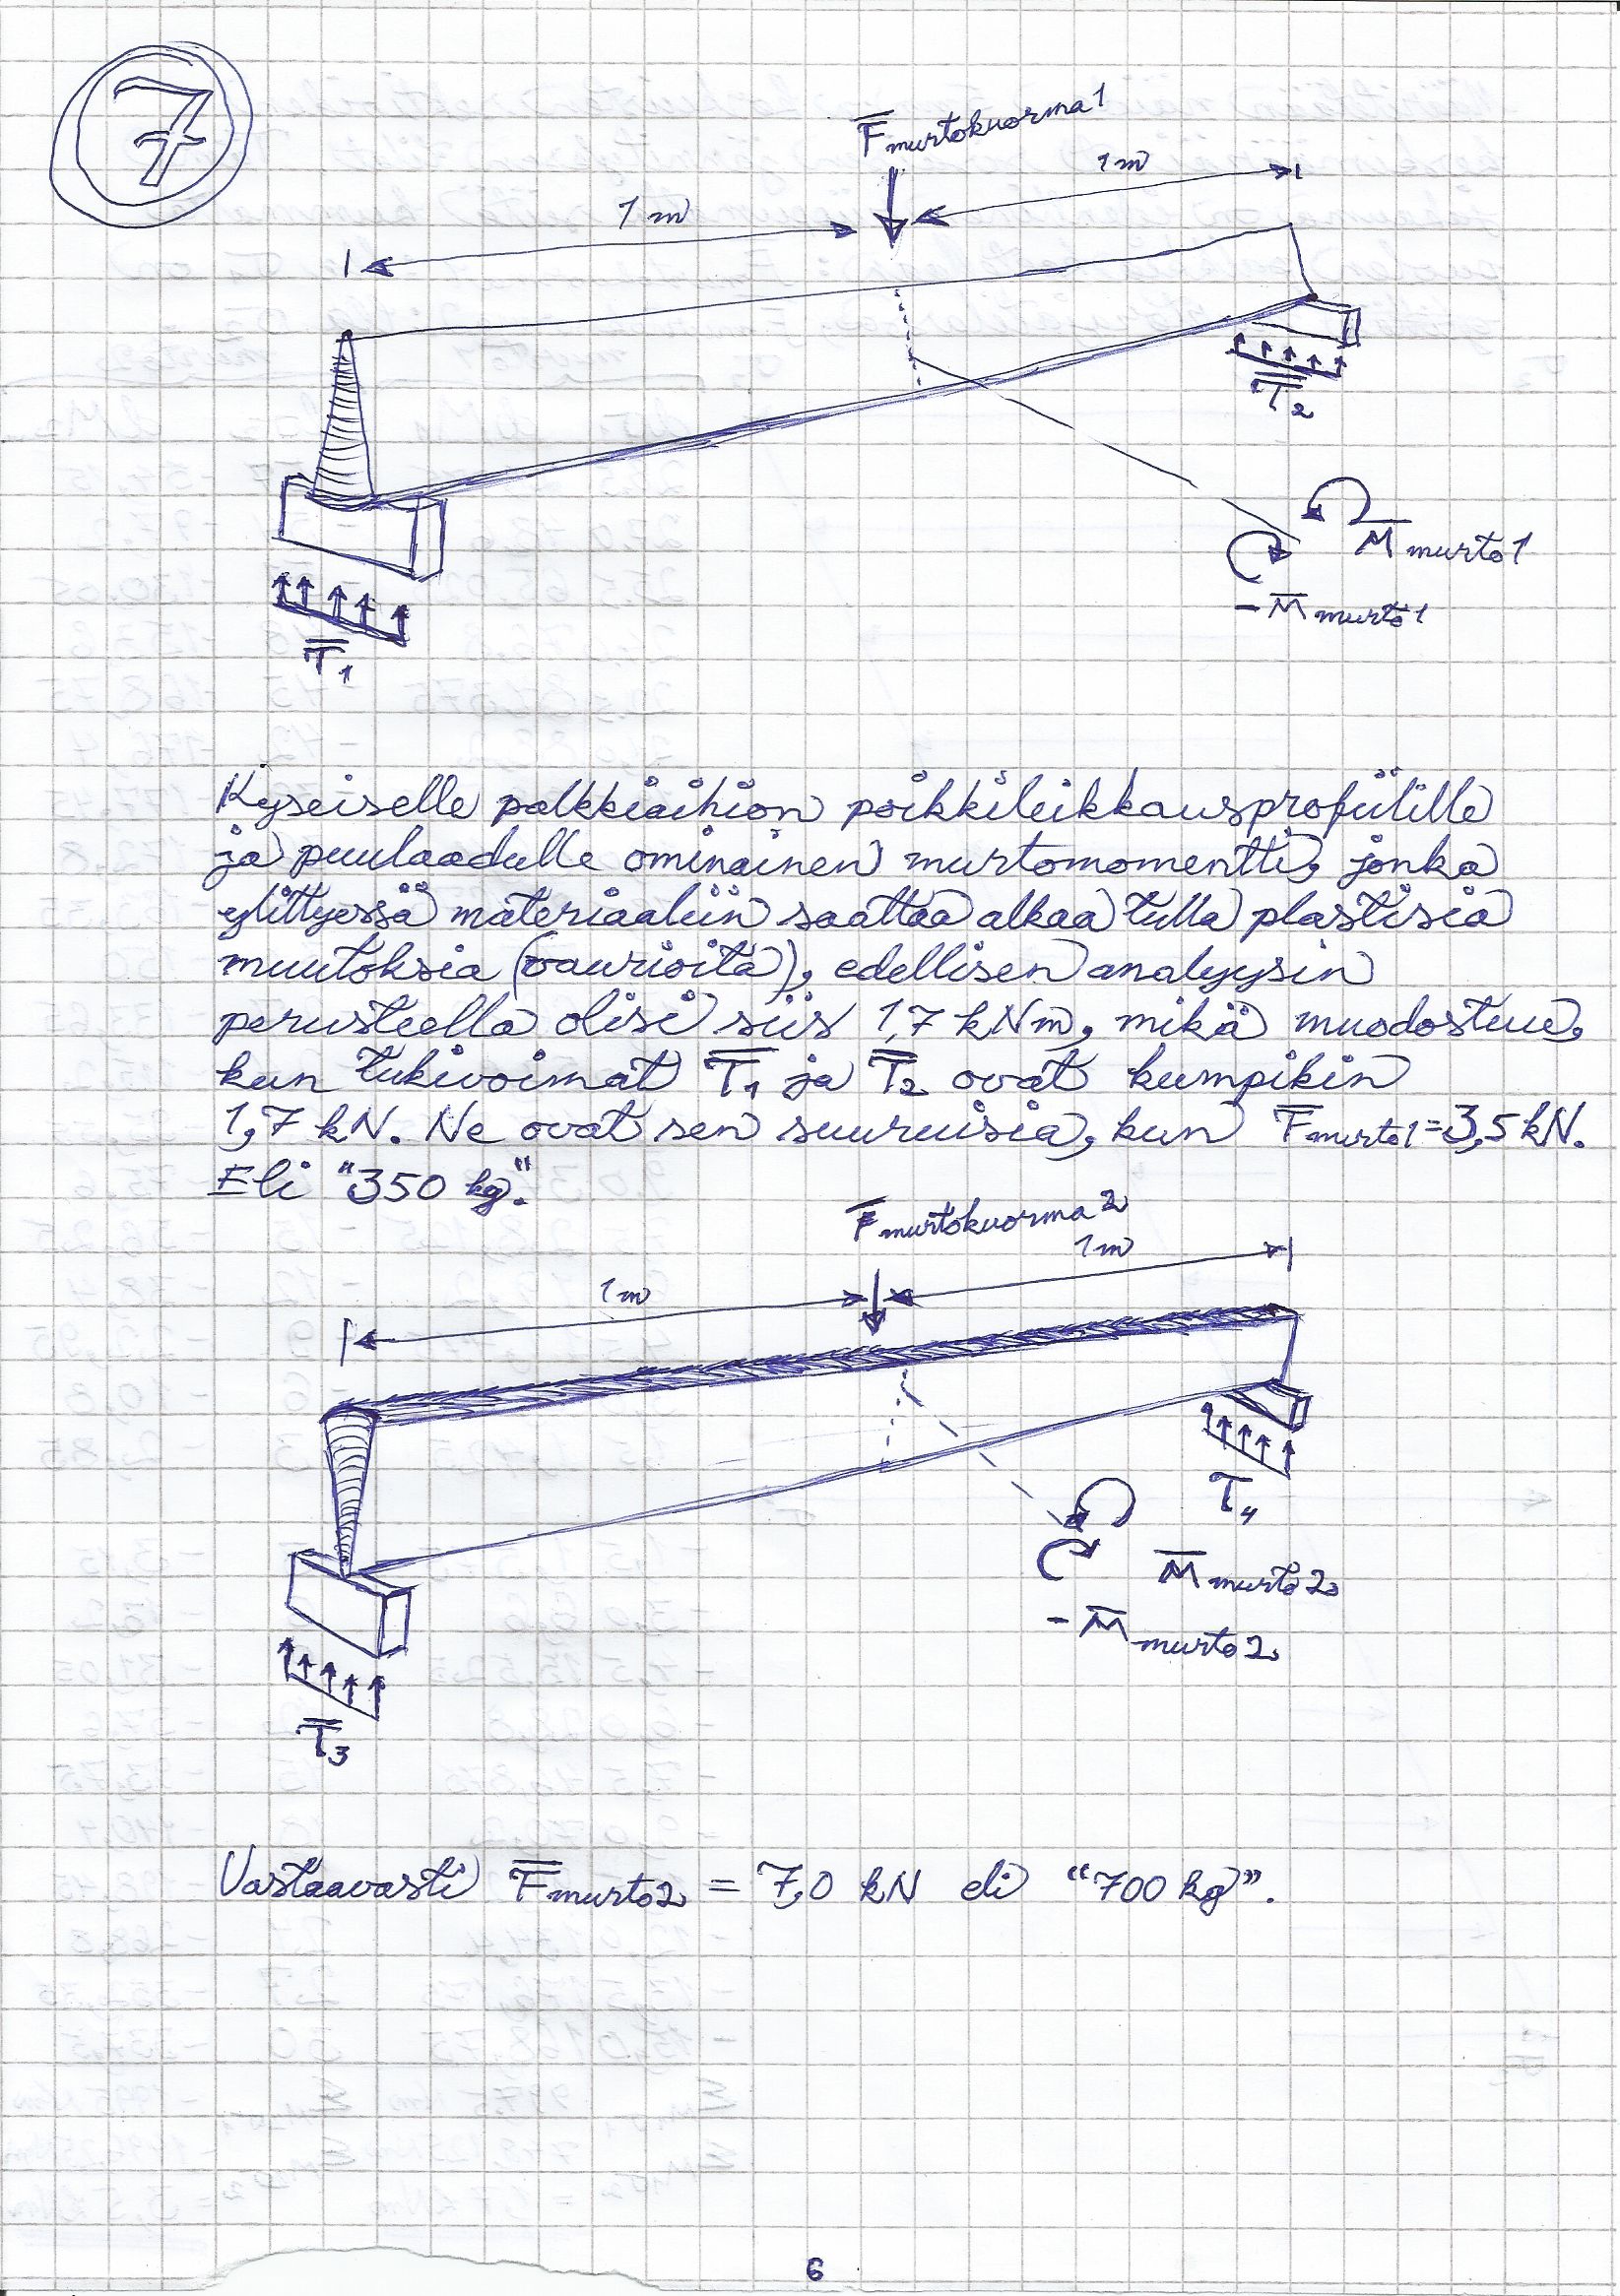 7
F̅murtokuorma1
1m
1m
T̿2
M̅murto1
-M̅murto1
T̿1
Kyseiselle palkkiaihion poikkileikkausprofiilille
ja puulaadulle ominainen murtomomentti, jonka
ylittyessä materiaaliin saattaa alkaa tulla plastisia
muutoksia (vaurioita), edellisen analyysin
perusteella olisi siis 1,7 kNm, mikä muodostuu,
kun tukivoimat T̿1 ja T̿2 ovat kumpikin
1,7 kN. Ne ovat sen suuruisia, kun F̅murto1=3,5kN.
Eli "350 kg".
F̅murtokuorma2
1m
1m
T̅4
M̅murto2
-M̅murto2
T̿3
Vastaavasti F̿murto2 = 7,0 kN eli "700 kg".
6